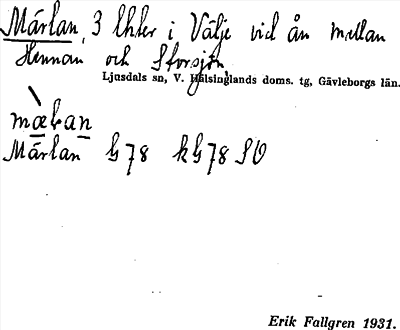 Märlan, 3 lhter i Välje vid ån mellan
Hennan och Storsjön,
Ljusdals sn, V. Hälsinglands doms. tg, Gävleborgs län.
Märlan G78 kG78 SO
Erik Fallgren 1931.